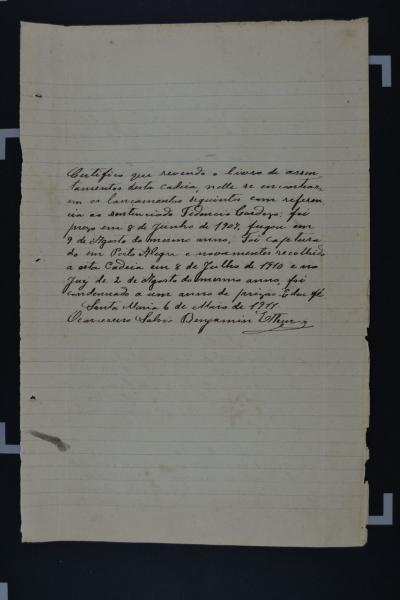 Certifico que revendo o livro de assen
tamentos desta cadeia, nelle se encontrar
em os lançamentos seguintes com referen
cia ao sentenciado Fidencio Cardozo: foi
prezo em 8 de Junho de 1909, fugou em
9 de Agosto do mesmo anno. Foi captura
do em Porto Alegre e novamentes recolhido
a esta Cadeia em 8 de Julho de 1910 e no
Jury de 2 de Agosto do mesmo anno, foi
condemnado a um anno de prizão. Edou fé
Santa Maria 6 de Maio de 1911
Ocarcereiro Benjamin